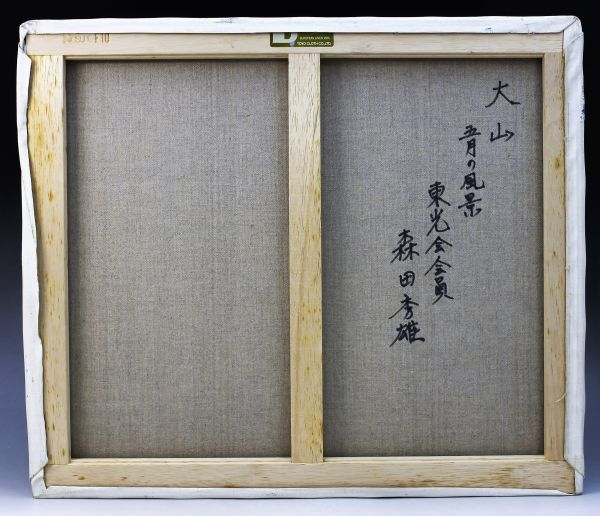 大山
五月の風景
東光会会員
森田秀雄
F10
EUROPEAN LINEN 100%
TOYO CLOTH CO.,LTD.